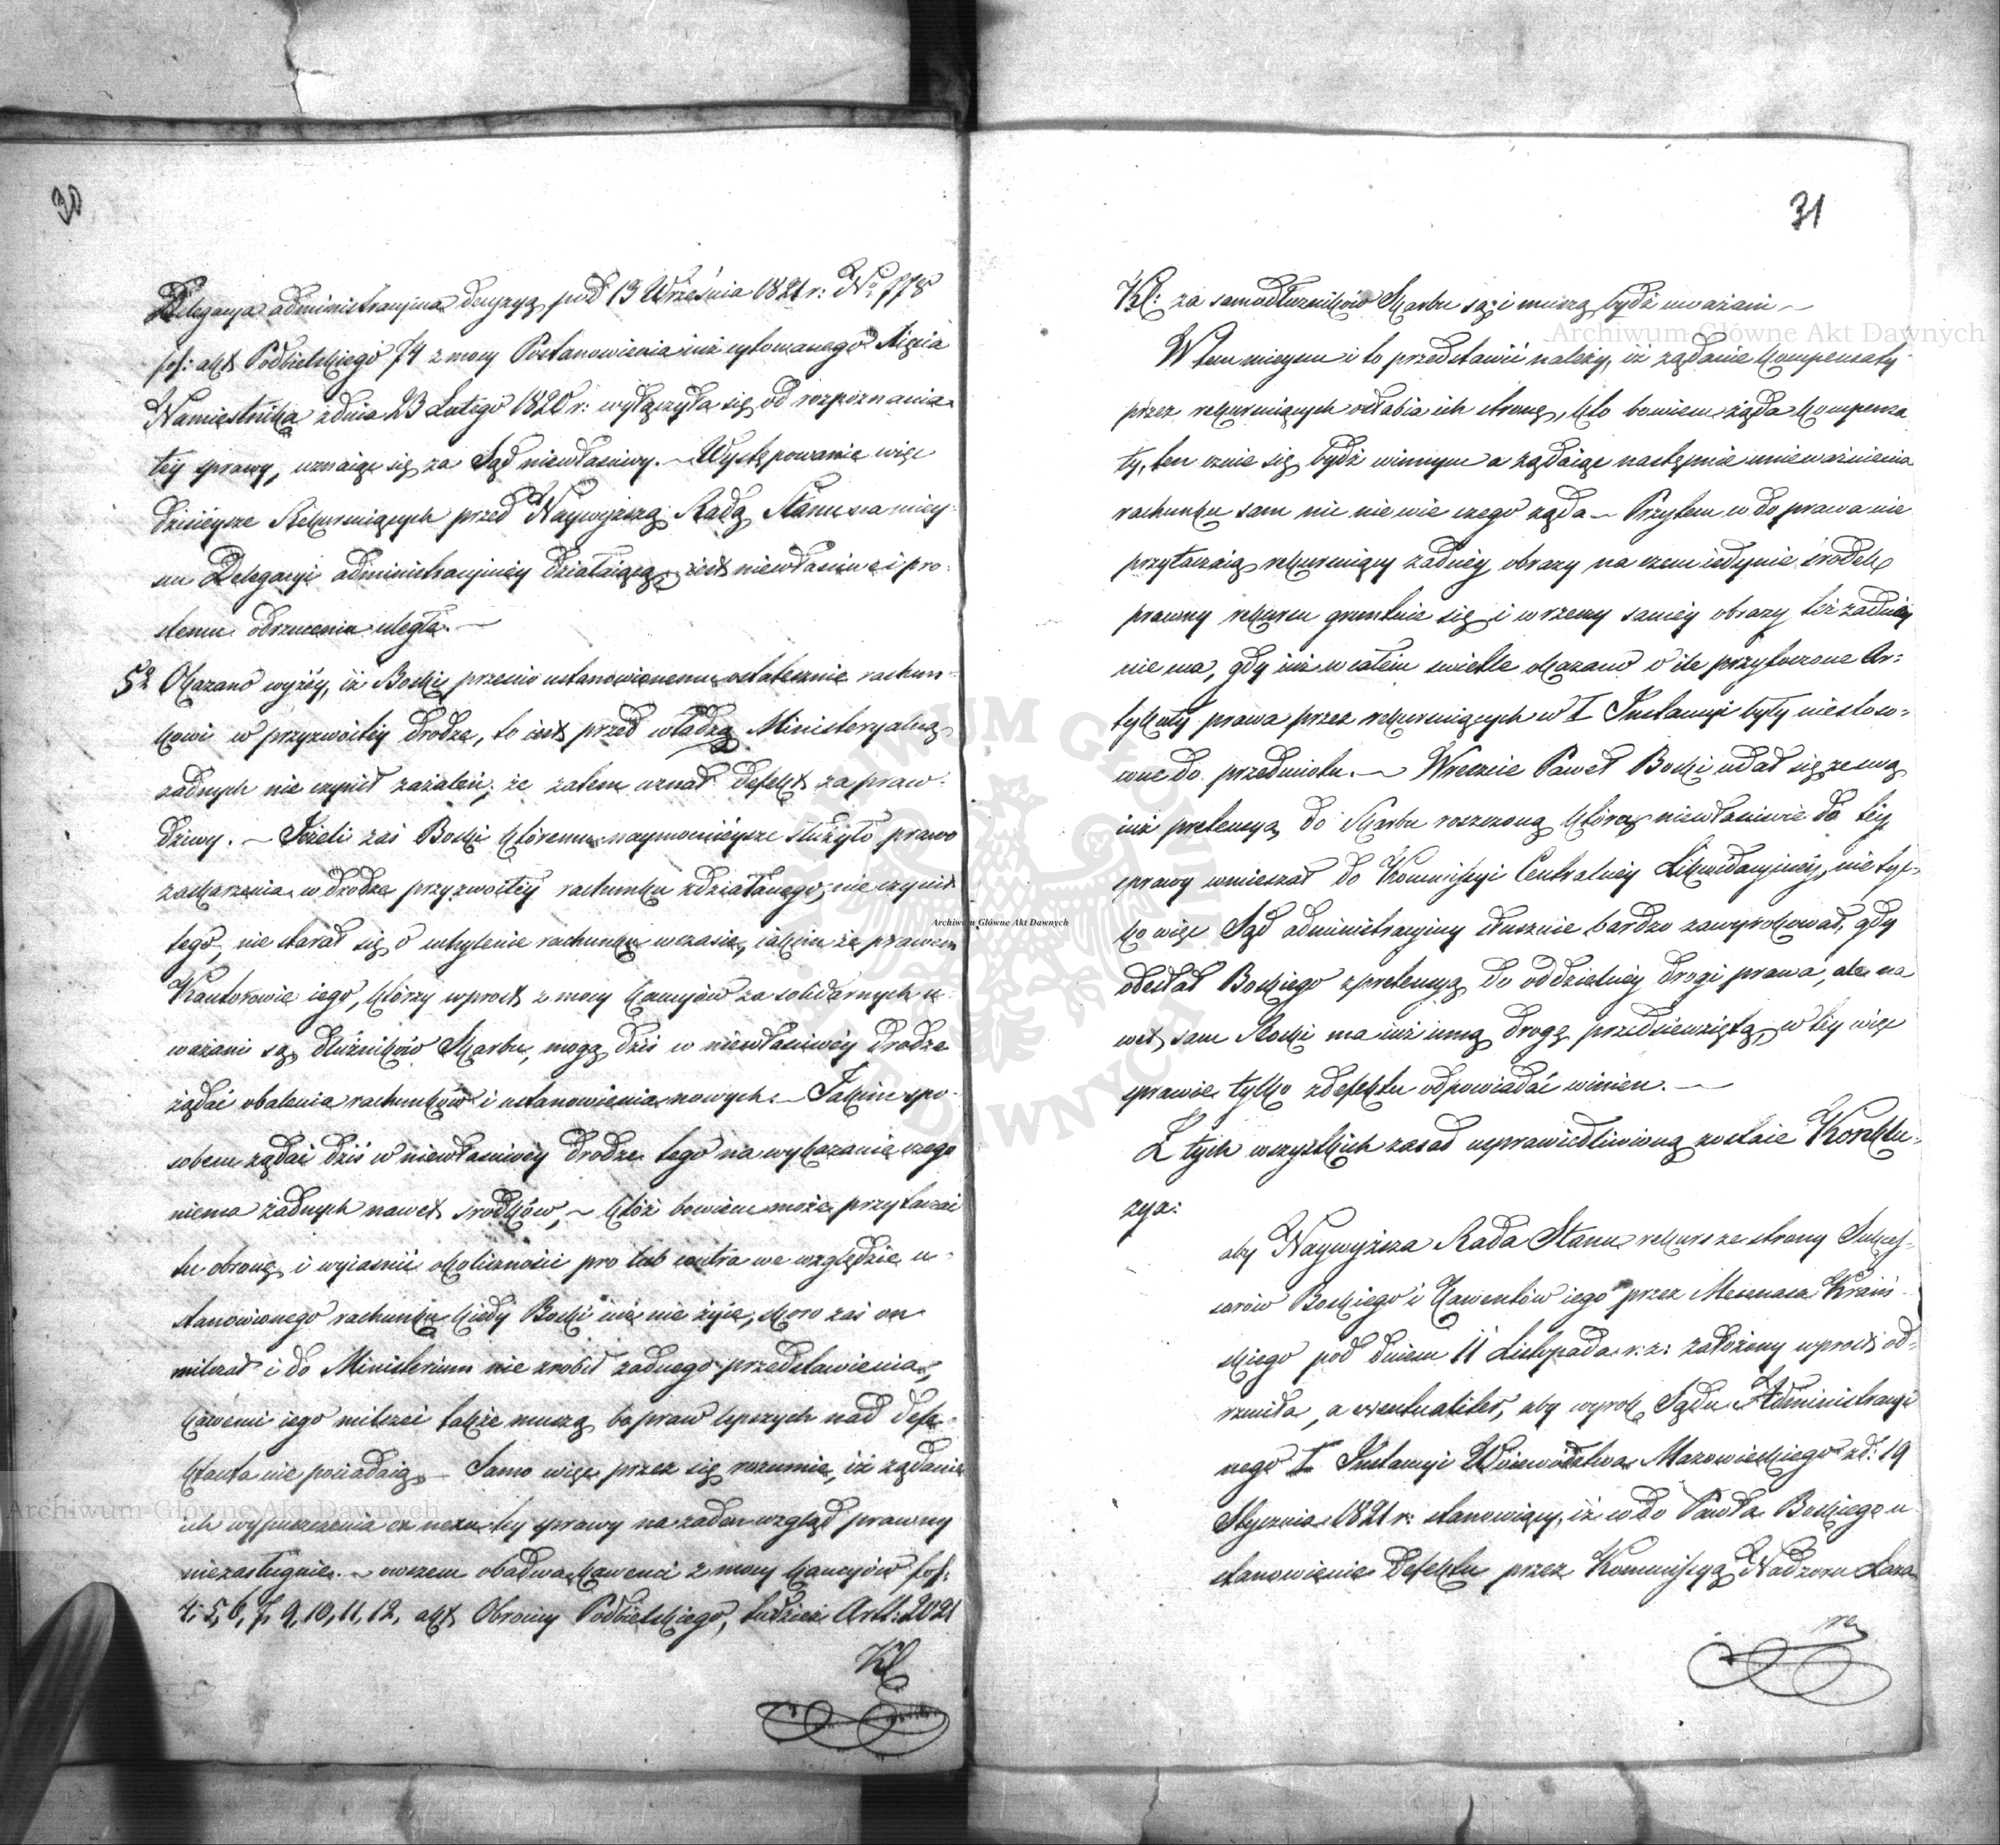 30
Delegacya administracyjna decyzyą pod 13 Września 1821 r: No 778
fof: akt Podbielskiego 74 z mocy Postanowienia iuż cytowanego Xięcia
Namiestnika z dnia 23 Lutego 1820 r: wyłączyła się od rozpoznania
tey sprawy, uznaiąc się za Sąd niewłaściwy. – Występowanie więc
dzisieysze Rekurruiących przed Naywyższą Radą Stanu na miey-
scu Delegacyi administracyjney działaiącą, iest niewłaściwe i pro-
stemu odrzuceniu uległe. –
5o Okazano wyżéy, iż Boski przeciw ustanowionemu ostatecznie rachun-
kowi w przyzwoitéy drodze, to iest przed władzą Ministeryalną
żadnych nie czynił zażaleń, że zatem uznał defekt za praw-
dziwy. – Jeżeli zaś Boski któremu naymocniéysze służyło prawo
zaskarżenia w drodze przyzwoitéy rachunku zdziałanego, nie czynił
tego, nie starał się o uchylenie rachunku wczasie, iakim że prawem
Kautorowie iego, którzy wprost z mocy kaucyów za solidarnych u-
ważani są dłużników Skarbu, mogą dziś w niewłaściwéy drodze
żądać obalenia rachunków i ustanowienia nowych. – Jakim spo-
sobem żądać dziś w niewłaściwéy drodze tego na wykazanie czego
niema żadnych nawet srodków, – któż bowiem może przytaczać
tu obronę i wyiaśnić okoliczności pro lub contra we względzie u-
stanowionego rachunku kiedy Boski iuż nie żyie, skoro zaś on
milczał i do Ministerium nie zrobił żadnego przedstawienia,
kawenci iego milczeć także muszą bo praw lepszych nad defe-
ktanta nie posiadaią. – Samo więc przez się rozumie, iż żądanie
ich wypuszczenia ex nexu tey sprawy na żaden wzgląd prawny
niezasługuie. – owszem obadwa kawenci z mocy kaucyów fof:
4, 5, 6, 7, 9, 10, 11, 12, akt Obrońcy Podbielskiego, tudzież Artt: 2021
Kl
31
Kl: za samodłużników Skarbu są i muszą bydź uważani –
W tem mieyscu i to przedstawić należy, iż żądanie kompensaty
przez rekurruiących osłabia ich stronę, kto bowiem żąda kompensa
ty, ten czuie się bydź winnym a żądaiąc następnie unieważnienia
rachunku sam nic nie wie czego żąda – Przytem w do prawa nie
przytaczaią rekurruiący żadnéy obrazy na czem iedynie środek
prawny rekursu gruntuie się i w rzeczy saméy obrazy téż żadnéy
nie ma, gdy iuż w całém swietle okazano o ile przytoczone Ar-
tykuły prawa przez rekurruiących w I Instancyi były niestoso-
wne do przedmiotu. – Wreszcie Paweł Boski udał się ze swą
iuż pretensyą do Skarbu roszczoną którą niewłaściwie do téy
sprawy wmieszał do Kommissyi Centralnéy Likwidacyjnéy, nie tyl-
ko więc Sąd administracyjny słusznie bardzo zawyrokował, gdy
odesłał Boskiego z pretensyą do oddzielnéy drogi prawa, ale na
wet sam Boski ma iuż inną drogę przedsiewziętą, w téy więc
sprawie tylko z defektu odpowiadać winien. –
Z tych wszystkich zasad usprawiedliwioną zostaie Konklu-
zya:
aby Naywyższa Rada Stanu rekurs ze strony Sukces-
sorów Boskiego i kawentów iego przez Mecenasa Kraiń-
skiego pod dniem 11 Listopada r: z: założony wprost od-
rzuciła, a eventualiter, aby wyrok Sądu Administracyi
nego I Instancyi Woiewództwa Mazowieckiego z d: 19
Stycznia 1821 r: stanowiący, iż w do Pawła Boskiego u
stanowienie defektu przez Kommissyą Nadzoru Laza
re
Archiwum Główne Akt Dawnych
Archiwum Główne Akt Dawnych
Archiwum Główne Akt Dawnych
ARCHIWUM GŁÓWNE AKT DAWNYCH